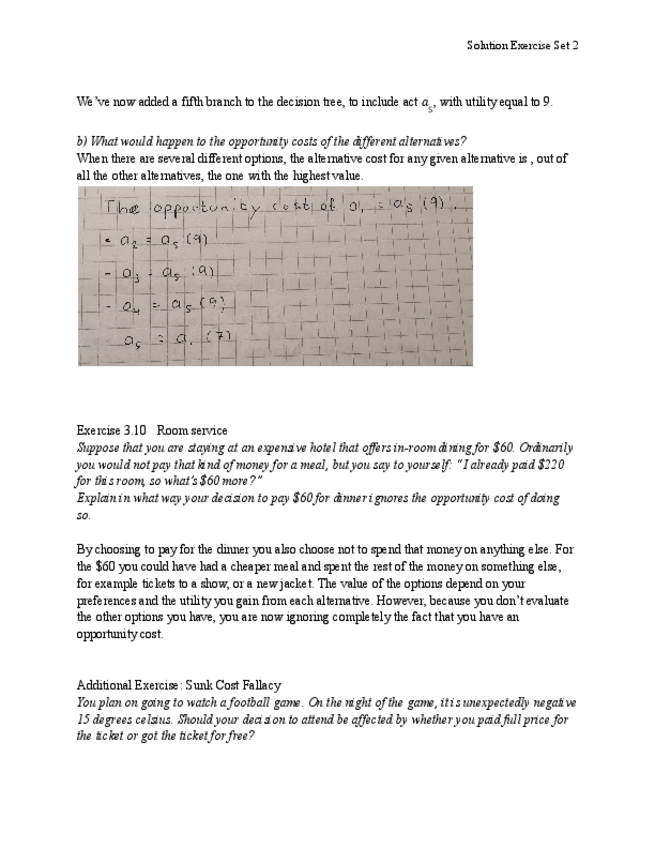 Solution Exercise Set 2
We've now added a fifth branch to the decision tree, to include act a5, with utility equal to 9.
b) What would happen to the opportunity costs of the different alternatives?
When there are several different options, the alternative cost for any given alternative is , out of
all the other alternatives, the one with the highest value.
The opportunity cost of a1 = a5 (9).
- a2 = a5 (9)
- a3 = a5 (9)
- a4 = a5 (9)
a5 = a1 (7)
Exercise 3.10 Room service
Suppose that you are staying at an expensive hotel that offers in-room dining for $60. Ordinarily
you would not pay that kind of money for a meal, but you say to yourself: "I already paid $220
for this room, so what's $60 more?"
Explain in what way your decision to pay $60 for dinner ignores the opportunity cost of doing
so.
By choosing to pay for the dinner you also choose not to spend that money on anything else. For
the $60 you could have had a cheaper meal and spent the rest of the money on something else,
for example tickets to a show, or a new jacket. The value of the options depend on your
preferences and the utility you gain from each alternative. However, because you don't evaluate
the other options you have, you are now ignoring completely the fact that you have an
opportunity cost.
Additional Exercise: Sunk Cost Fallacy
You plan on going to watch a football game. On the night of the game, it is unexpectedly negative
15 degrees celsius. Should your decision to attend be affected by whether you paid full price for
the ticket or got the ticket for free?